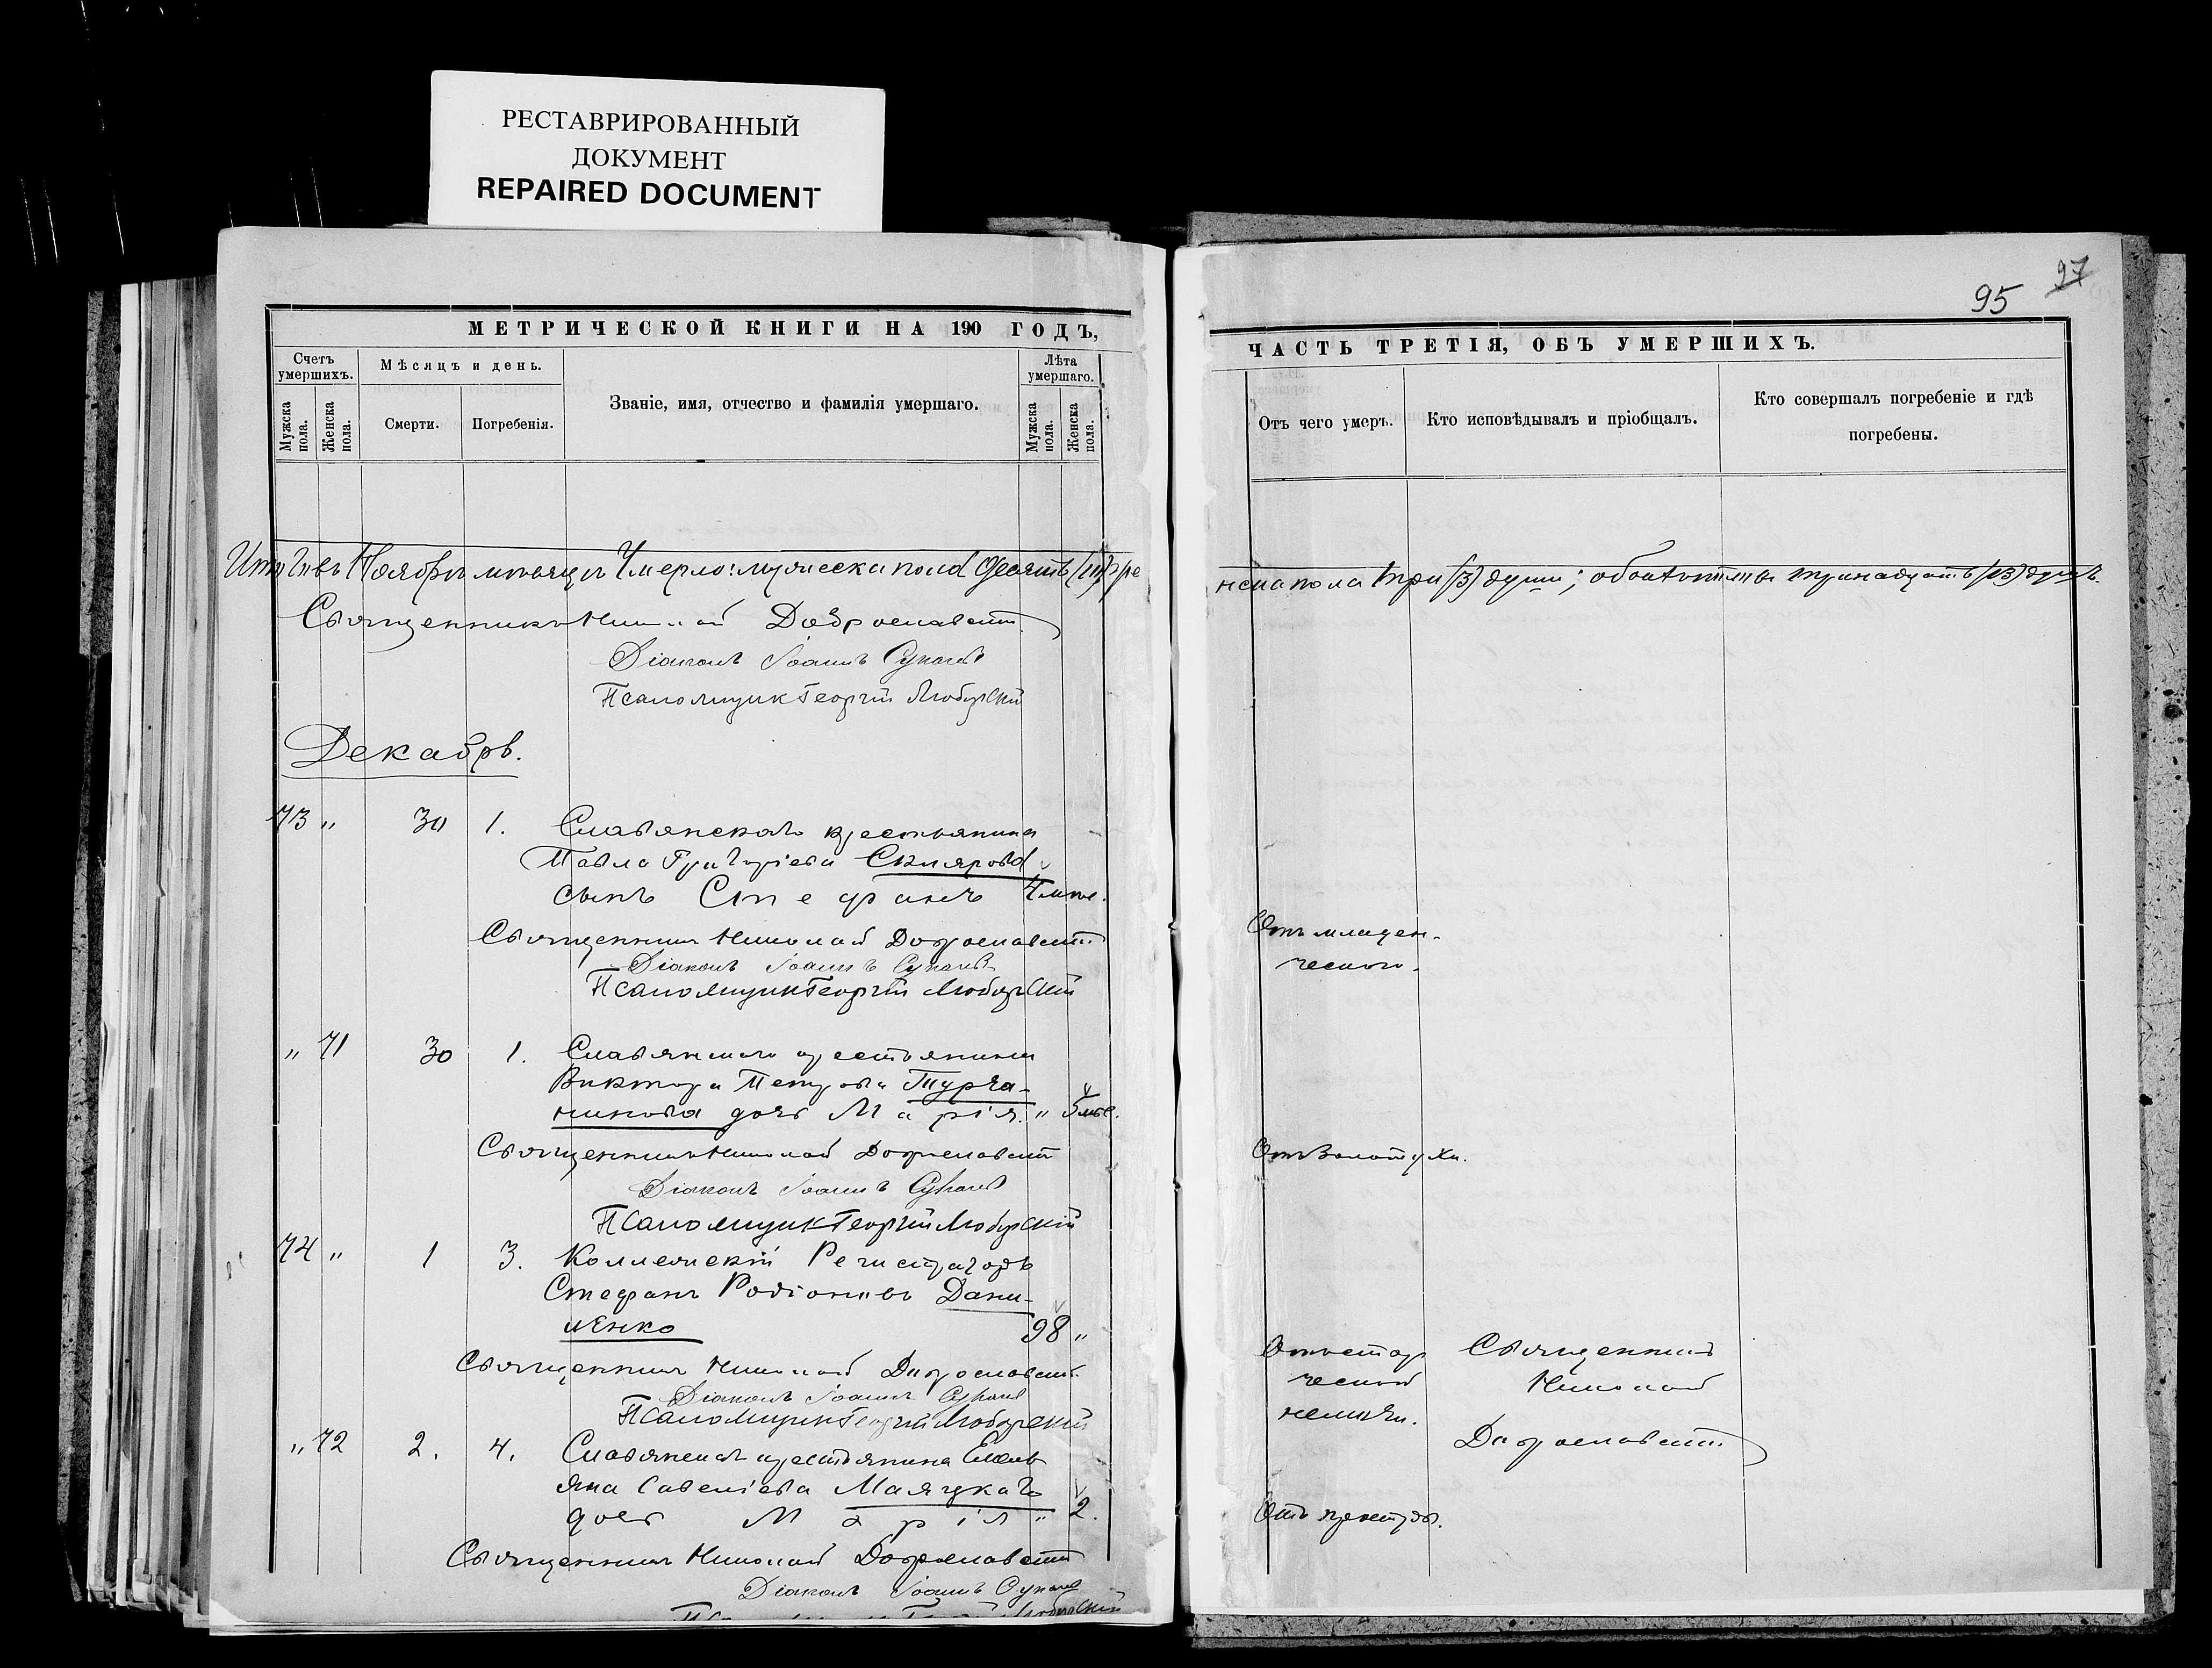 РЕСТАВРИРОВАННЫЙ
ДОКУМЕНТ
REPAIRED DOCUMENT
МЕТРИЧЕСКОЙ КНИГИ НА 190 ГОДЪ,
Счетъ умершихъ.
Мужска пола.
Женска пола.
Мѣсяцъ и день.
Смерти.
Погребенія.
Званіе, имя, отчество и фамилія умершаго.
Лѣта умершаго.
Мужска пола.
Женска пола.
Итого въ Ноябрѣ мѣсяцѣ Умерло: мужеска пола десять (10)
Священникъ Николай Доброславскій
Діаконъ Іоаннъ
Псаломщикъ Георгій
Декабрь.
73 " 30 1. Славянскаго крестьянина
Павла Григоріева Склярова
сынъ Стефанъ 4 мѣс.
Священникъ Николай Доброславскій
Діаконъ Іоаннъ
Псаломщикъ Георгій
" 71 30 1. Славянскаго крестьянина
Виктора Петрова Турча-
нинова дочь Марія. " 5 мѣс.
Священникъ Николай Доброславскій
Діаконъ Іоаннъ
Псаломщикъ Георгій
74 " 1 3. Коллежскій Регистраторъ
Стефанъ Родіоновъ Дани-
ленко 98 "
Священникъ Николай Доброславскій
Діаконъ Іоаннъ
Псаломщикъ Георгій
" 72 2. 4. Славянскаго крестьянина Емель
яна Савеліева Маяцкаго
дочь Марія " 2.
Священникъ Николай Доброславскій
Діаконъ Іоаннъ
95 97
ЧАСТЬ ТРЕТІЯ, ОБЪ УМЕРШИХЪ.
Отъ чего умеръ.
Кто исповѣдывалъ и пріобщалъ.
Кто совершалъ погребеніе и гдѣ
погребены.
нска пола три (3) души; обоего пола тринадцать (13) душъ.
Отъ младен-
ческой.
Отъ Золотухи.
Отъ стар
ческой
немощи.
Священникъ
Николай
Доброславскій
Отъ простуды.